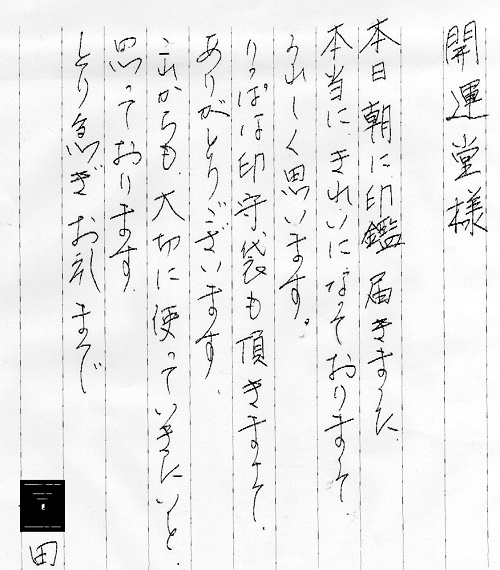 開運堂様
本日朝に印鑑届きました.
本当に.きれいになっており まして.
うれしく思います。
りっぱな印守袋も頂きまして.
ありがとうございます.
これからも.大切に使っていきたいと.
思っております.
とり急ぎお礼まで
田